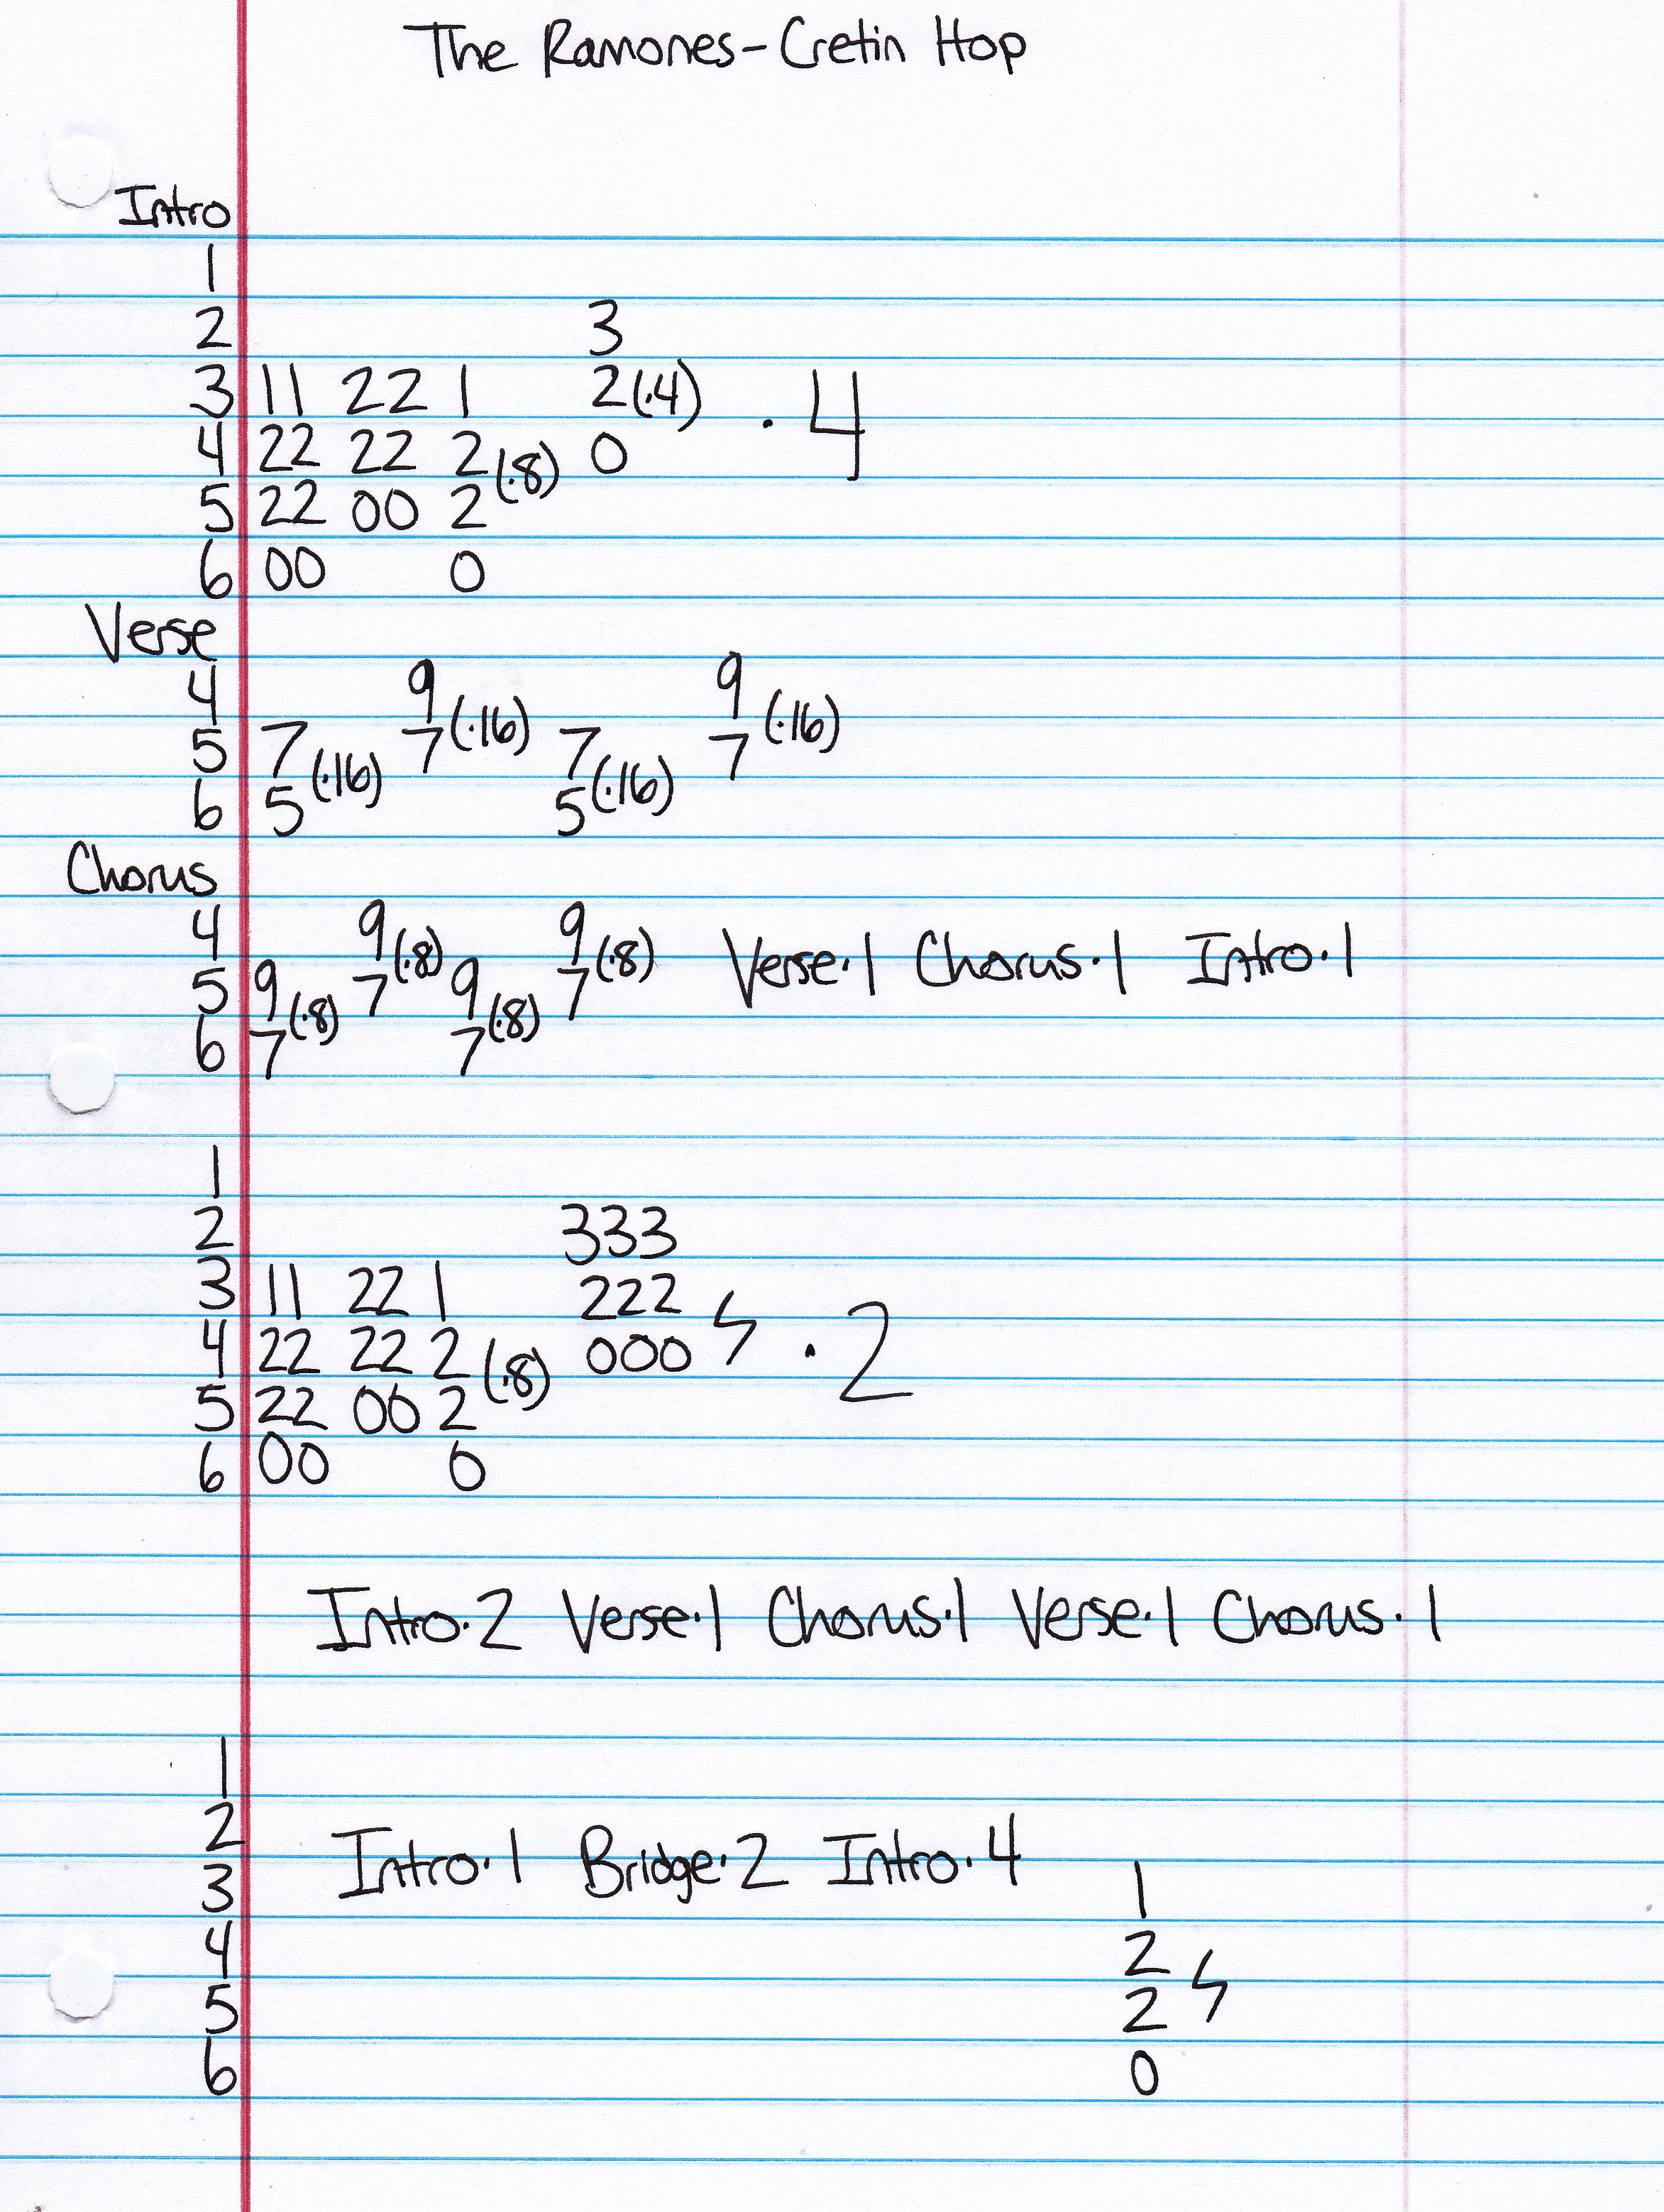 The Ramones-Cretin Hop
Intro
1
2 3
3 11 22 1 2(.4) . 4
4 22 22 2 (.8) 0
5 22 00 2
6 00 0
Verse
4 9 9
5 7 7 (.16) 7 7 (.16)
6 5 (.16) 5 (.16)
Chorus
4 9 9
5 9 7 (.8) 9 7 (.8) Verse.1 Chorus.1 Intro.1
6 7 (.8) 7 (.8)
1
2 333
3 11 22 1 222
4 22 22 2 (.8) 000 . 2
5 22 00 2
6 00 0
Intro.2 Verse.1 Chorus.1 Verse.1 Chorus.1
1
2 Intro.1 Bridge.2 Intro.4
3 1
4 2
5 2
6 0